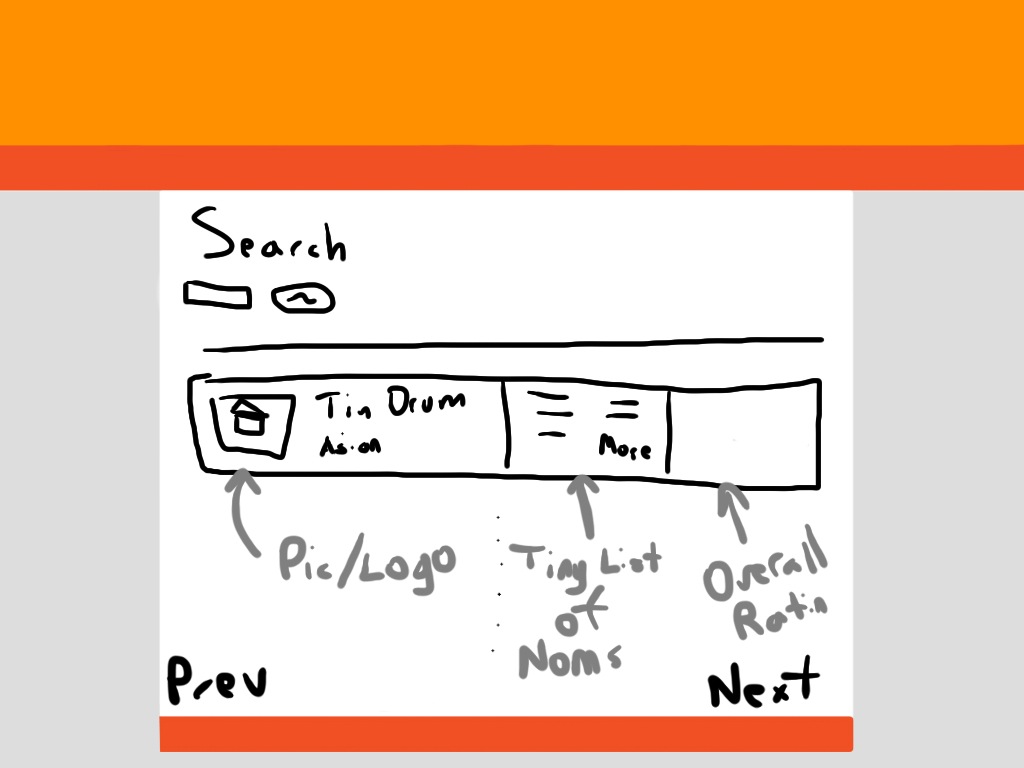 Search
Tin Drum
Asian
More
Pic/Logo
Tiny List
of
Noms
Overall
Ratin
Prev
Next